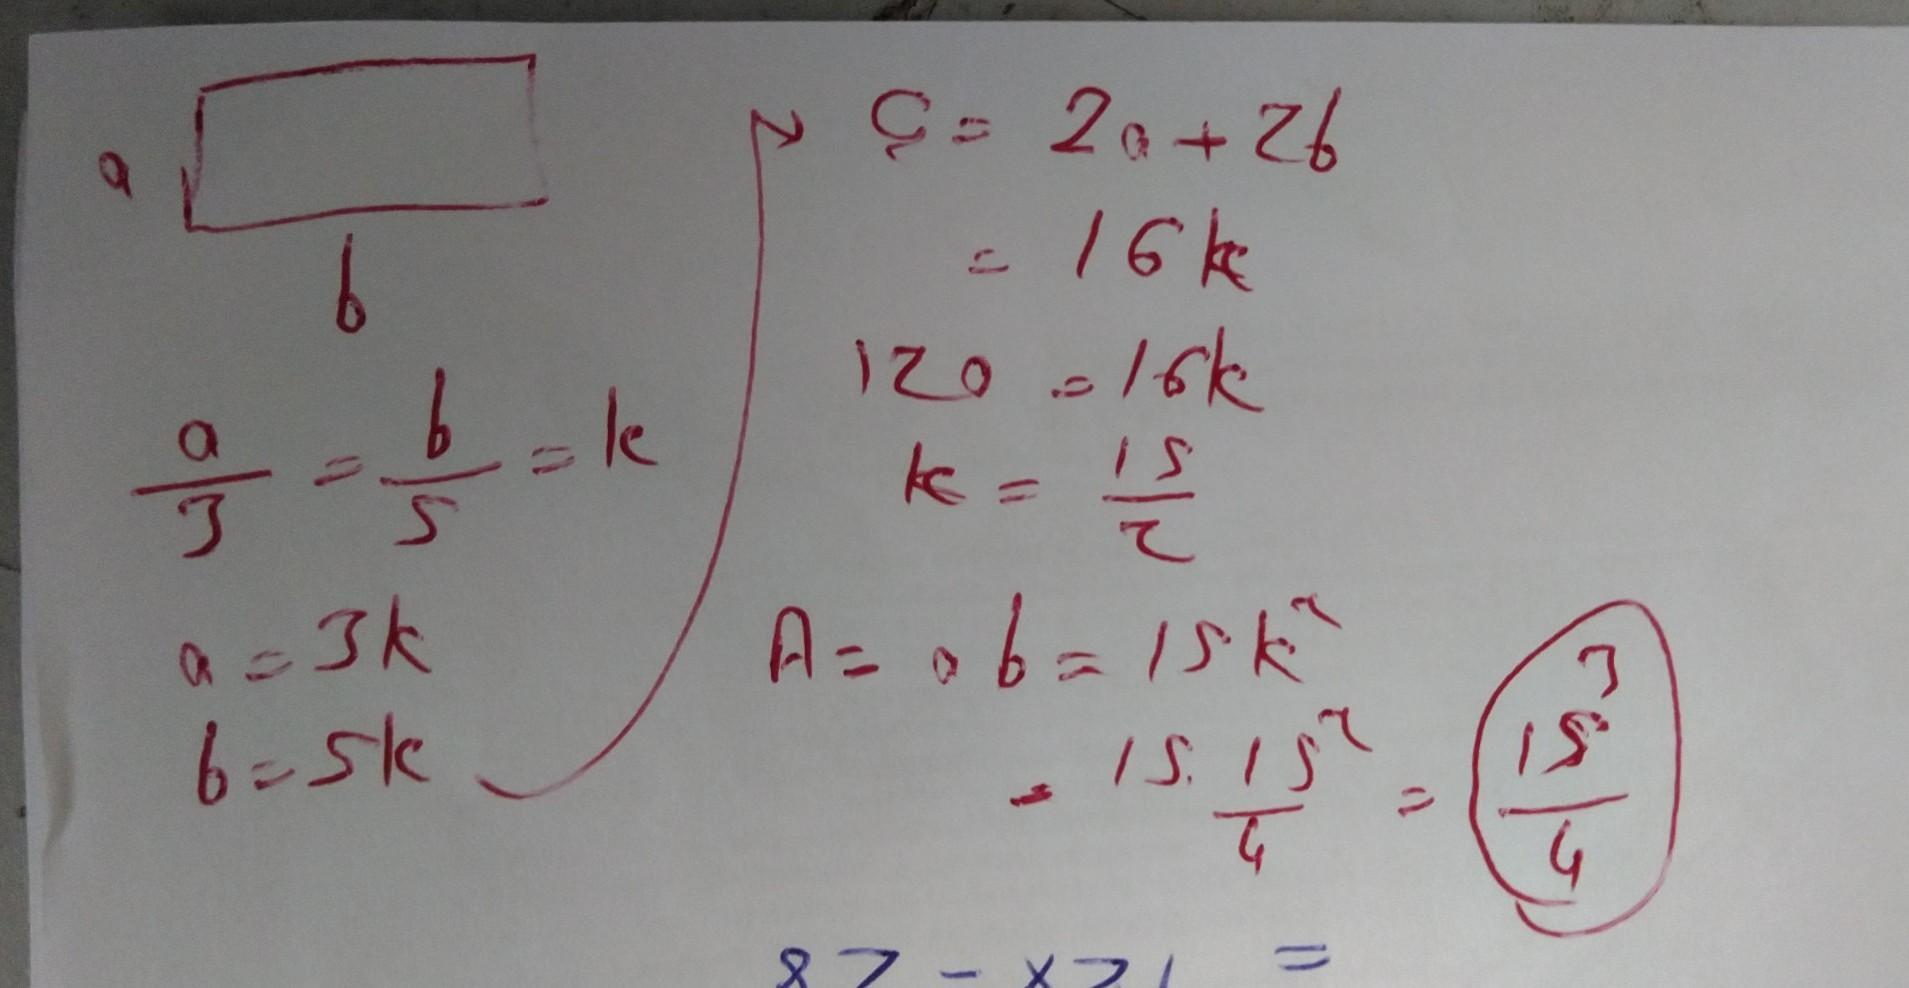 a
b
a/3 = b/5 = k
a = 3k
b = 5k
Ç = 2a + 2b
= 16k
120 = 16k
k = 15/2
A = ab = 15k²
= 15 . 15²/4 = 15³/4